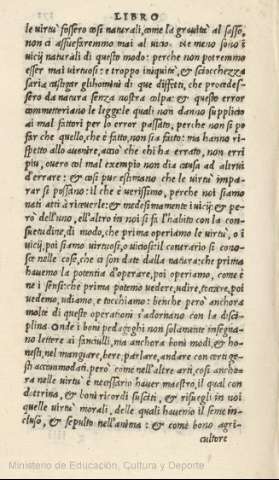 LIBRO
le virtù fossero cosi naturali, come la gravità al sasso,
non ci assuefaremmo mai al vitio. Ne meno sono i
vicij naturali di questo modo: perche non potremmo
esser mai virtuosi: e troppo iniquità, & sciocchezza
saria castigar gli homini di que diffetti, che procedes-
sero da natura senza nostra colpa: & questo error
commetteriano le leggi: le quali non danno supplicio
ai mal fattori per lo error passato, perche non si po
far che quello, che è fatto, non sia fatto: ma hanno ri-
spetto allo avenire, acciò che chi ha errato, non erri
piu, overo col mal exempio non dia causa ad altrui
d'errare: & cosi pur estimano che le virtù impa-
rar si possano: il che è verissimo, perche noi siamo
nati atti à riceverle: & medesimamente i vicij: & pe-
rò dell'uno, e ll'altro in noi si fa l'habito con la con-
suetudine, di modo, che prima operiamo le virtù, o i
vicij, poi siamo virtuosi, o vitiosi: il contrario si cono-
sce nelle cose, che ci son date dalla natura: che prima
havemo la potentia d'operare, poi operiamo, come è
ne i sensi: che prima potemo vedere, udire, toccare, poi
vedemo, udiamo, e tocchiamo: benche però anchora
molte di queste operationi s'adornano con la disci-
plina. Onde i boni pedagoghi non solamente insegna-
no lettere ai fanciulli, ma anchora boni modi, & ho-
nesti, nel mangiare, bere, parlare, andare con certi ge-
sti accommodati. però come nell'altre arti, cosi ancho-
ra nelle virtù è necessario haver maestro, il qual con
dottrina, & boni ricordi susciti, & risuegli in noi
quelle virtù morali, delle quali havemo il seme in-
cluso, & sepulto nell'anima: & come bono agri-
cultore
Ministerio de Educación, Cultura y Deporte